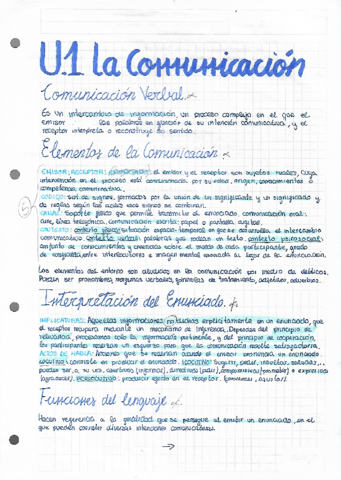 U.1 La Comunicación
Comunicación Verbal
Es un intercambio de información, un proceso complejo en el que el
emisor las palabras en función de su intención comunicativa, y el
receptor interpreta o reconstruye su sentido.
Elementos de la Comunicación
EMISOR; RECEPTOR: el emisor y el receptor son sujetos reales, cuya
intervención en el proceso está condicionada por su edad, origen, conocimientos o
competencia comunicativa.
CÓDIGO: son los signos, formados por la unión de un significante y un significado y
de reglas según las cuales esos signos se combinan.
CANAL: Soporte físico que permite transmitir el enunciado, comunicación oral:
aire, línea telefónica, comunicación escrita: papel o pantalla digital.
CONTEXTO: contexto físico: situación espacio-temporal en que se desarrolla el intercambio
comunicativo, contexto verbal: palabras que rodean un texto, contexto psicosocial:
conjunto de conocimientos y creencias sobre el mundo de cada participante, grado
de entre interlocutores e imagen mental asociada al lugar de la enunciación.
Los elementos del entorno son aludidos en la comunicación por medio de deícticos.
Pueden ser pronombres, morfemas verbales, fórmulas de tratamiento, adjetivos, adverbios.
Interpretación del Enunciado
IMPLICATURAS: Aquellas informaciones no explícitamente en un enunciado, que
el receptor recupera mediante un mecanismo de inferencia. Dependen del principio de
relevancia, procesamos solo la información pertinente, y del principio de cooperación,
los participantes realizan un esfuerzo para que la comunicación resulte satisfactoria.
ACTOS DE HABLA: Acciones que se realizan cuando el emisor pronuncia un enunciado.
LOCUTIVO: consiste en producir el enunciado. ILOCUTIVO: sugerir, pedir, invitar, saludar,...
pueden ser, a su vez, asertivos (informar), directivos (pedir), compromisivos (prometer) o expresivos
(agradecer). PERLOCUTIVO: producir efecto en el receptor.
Funciones del lenguaje
Hacen referencia a la finalidad que se persigue al emitir un enunciado, en el
que pueden convivir diversas intenciones comunicativas.
→